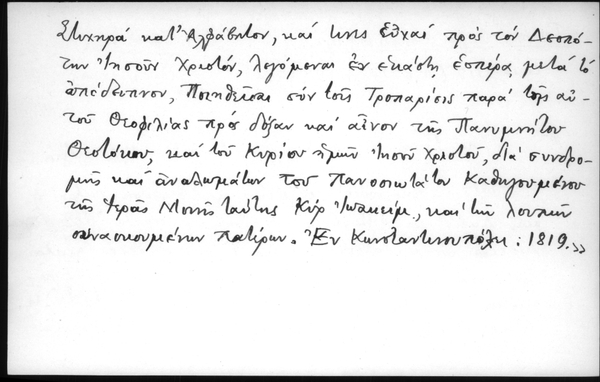 Στιχηρά κατ' Ἀλφάβητον, καί τινες Εὐχαί πρός τόν Δεσπό-
την Ἰησοῦν Χριστόν, λεγόμεναι ἐν ἑκάστῃ ἑσπέρᾳ μετά τό
ἀπόδειπνον, Ποιηθεῖσαι σύν τοῖς Τροπαρίοις παρά τῆς αὐ-
τοῦ Θεοφιλίας πρός δόξαν καί αἶνον τῆς Πανυμνήτου
Θεοτόκου, καί τοῦ Κυρίου ἡμῶν Ἰησοῦ Χριστοῦ, διά συνδρο-
μῆς καί ἀναλωμάτων τοῦ Πανοσιωτάτου Καθηγουμένου
τῆς Ἱερᾶς Μονῆς ταύτης Κύρ Ἰωακείμ, καί τῶν λοιπῶν
συνασκουμένων Πατέρων. Ἐν Κωνσταντινουπόλει : 1819.»